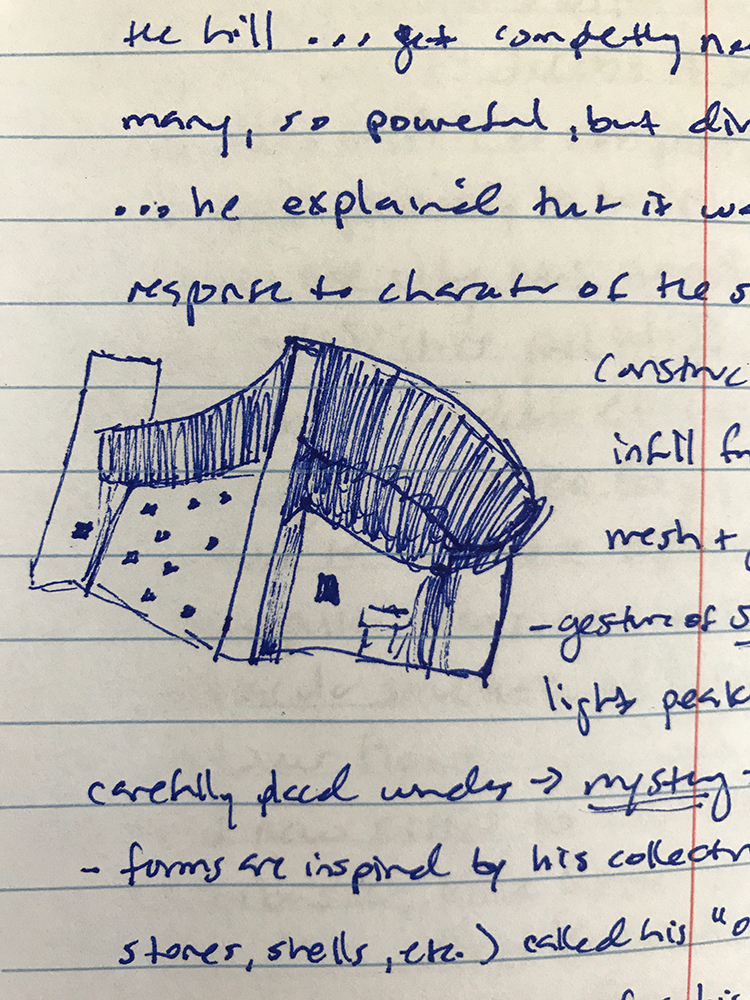 the hill ... get completly
many, so powerful, but div
... he explained tht it wa
response to charater of the s
construc
infill f
mesh +
- gesture of s
light peak
carefully placd windos → mystery
- forms are inspired by his collectn
stones, shells, etc.) called his "o